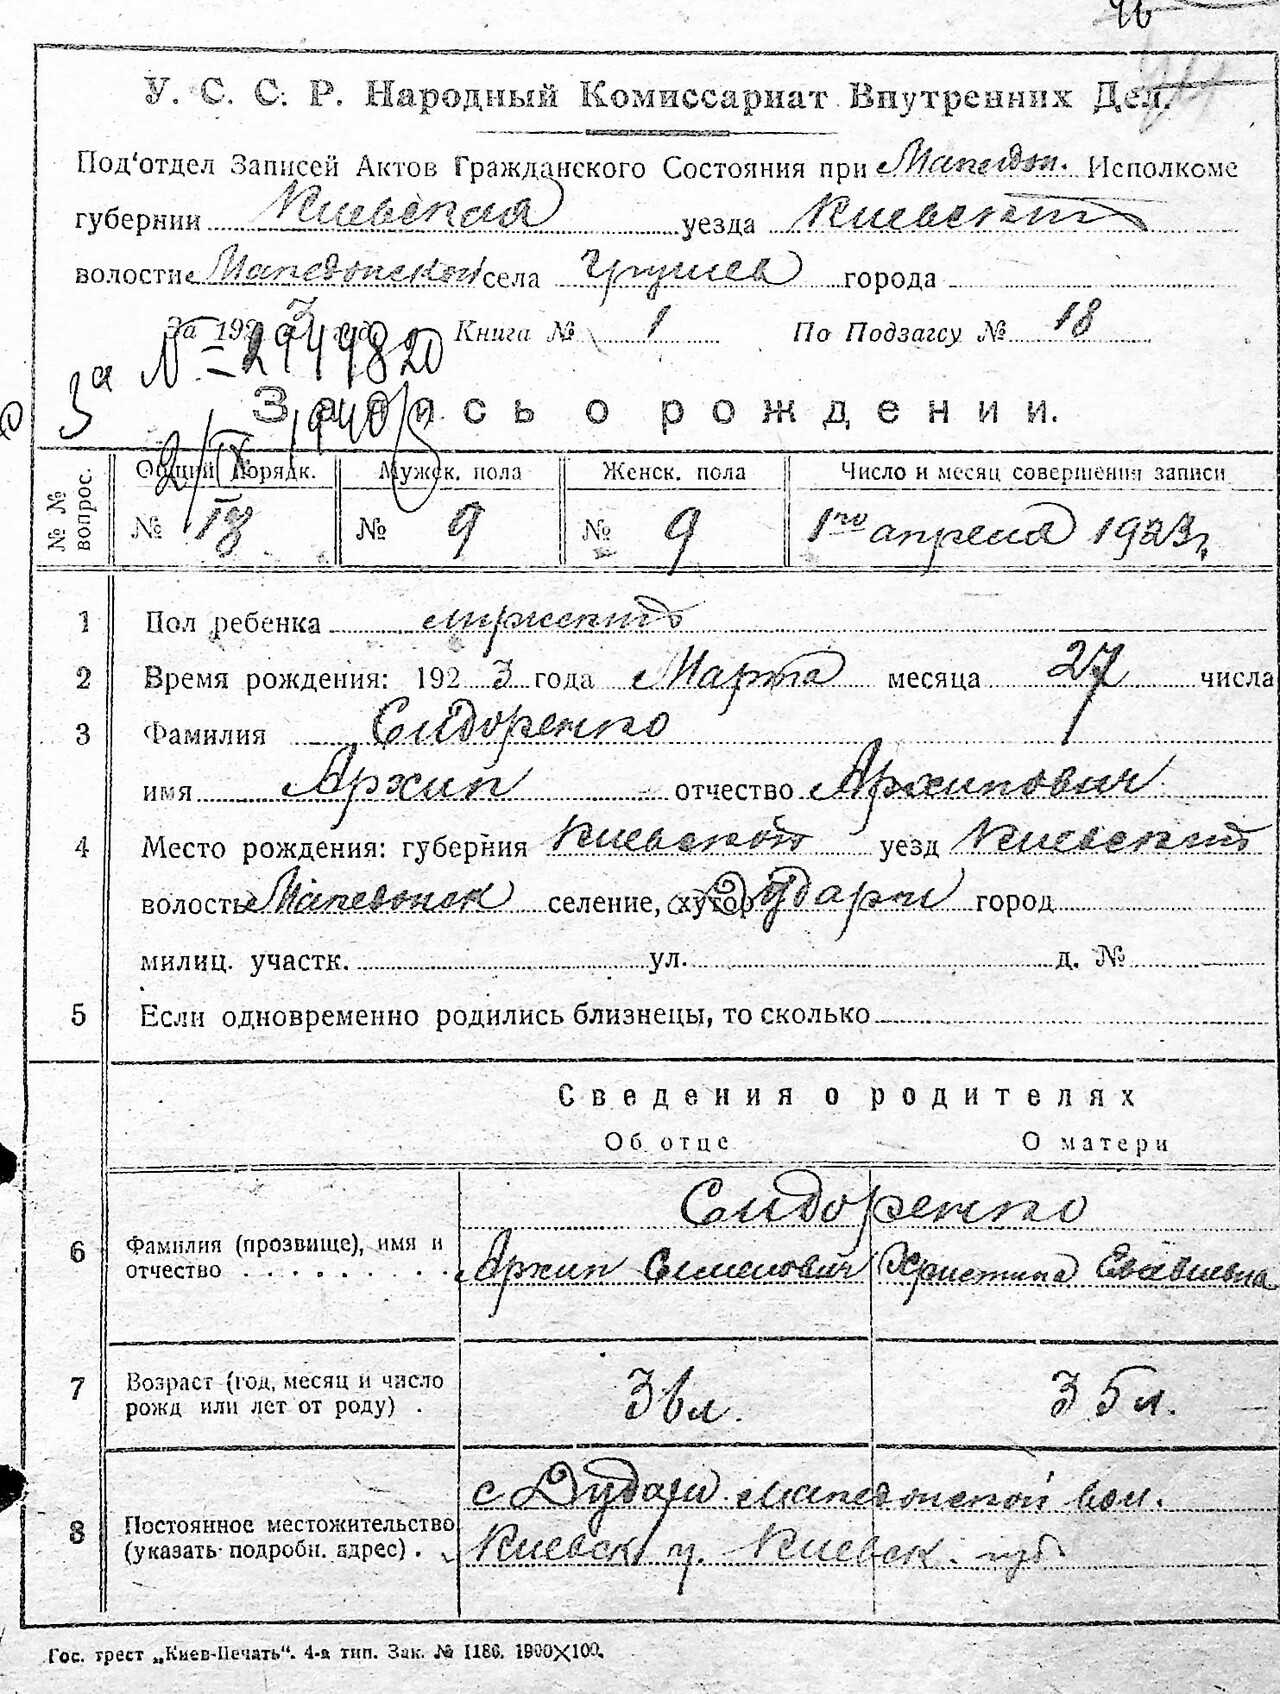 46
У. С. С. Р. Народный Комиссариат Внутренних Дел.
Под'отдел Записей Актов Гражданского Состояния при Македон. Исполкоме
губернии Киевская уезда Киевский
волостие Македонской села Грушев города
За 1923 год Книга № 1 По Подзагсу № 18
За № - 2949820
Запись о рождении.
2/IX 1940
№ № вопрос. Общий порядк. Мужск. пола Женск. пола Число и месяц совершения записи
№ 18 № 9 № 9 1го апреля 1923 г.
1 Пол ребенка мужский
2 Время рождения: 1923 года Марта месяца 27 числа
3 Фамилия Сидоренко
имя Архип отчество Архипович
4 Место рождения: губерния Киевской уезд Киевский
волость Македонск селение, хутор Дудари город
милиц. участк. ул. д. №
5 Если одновременно родились близнецы, то сколько
Сведения о родителях
Об отце О матери
Сидоренко
6 Фамилия (прозвище), имя и отчество Архип Семенович Христина Евсеевна
7 Возраст (год, месяц и число рожд или лет от роду) . 36 л. 35 л.
с Дудари Македонской вол.
8 Постоянное местожительство (указать подробн. адрес) . Киевск у. Киевск. губ.
Гос. трест „Киев-Печать“. 4-я тип. Зак. № 1186. 1900×100.